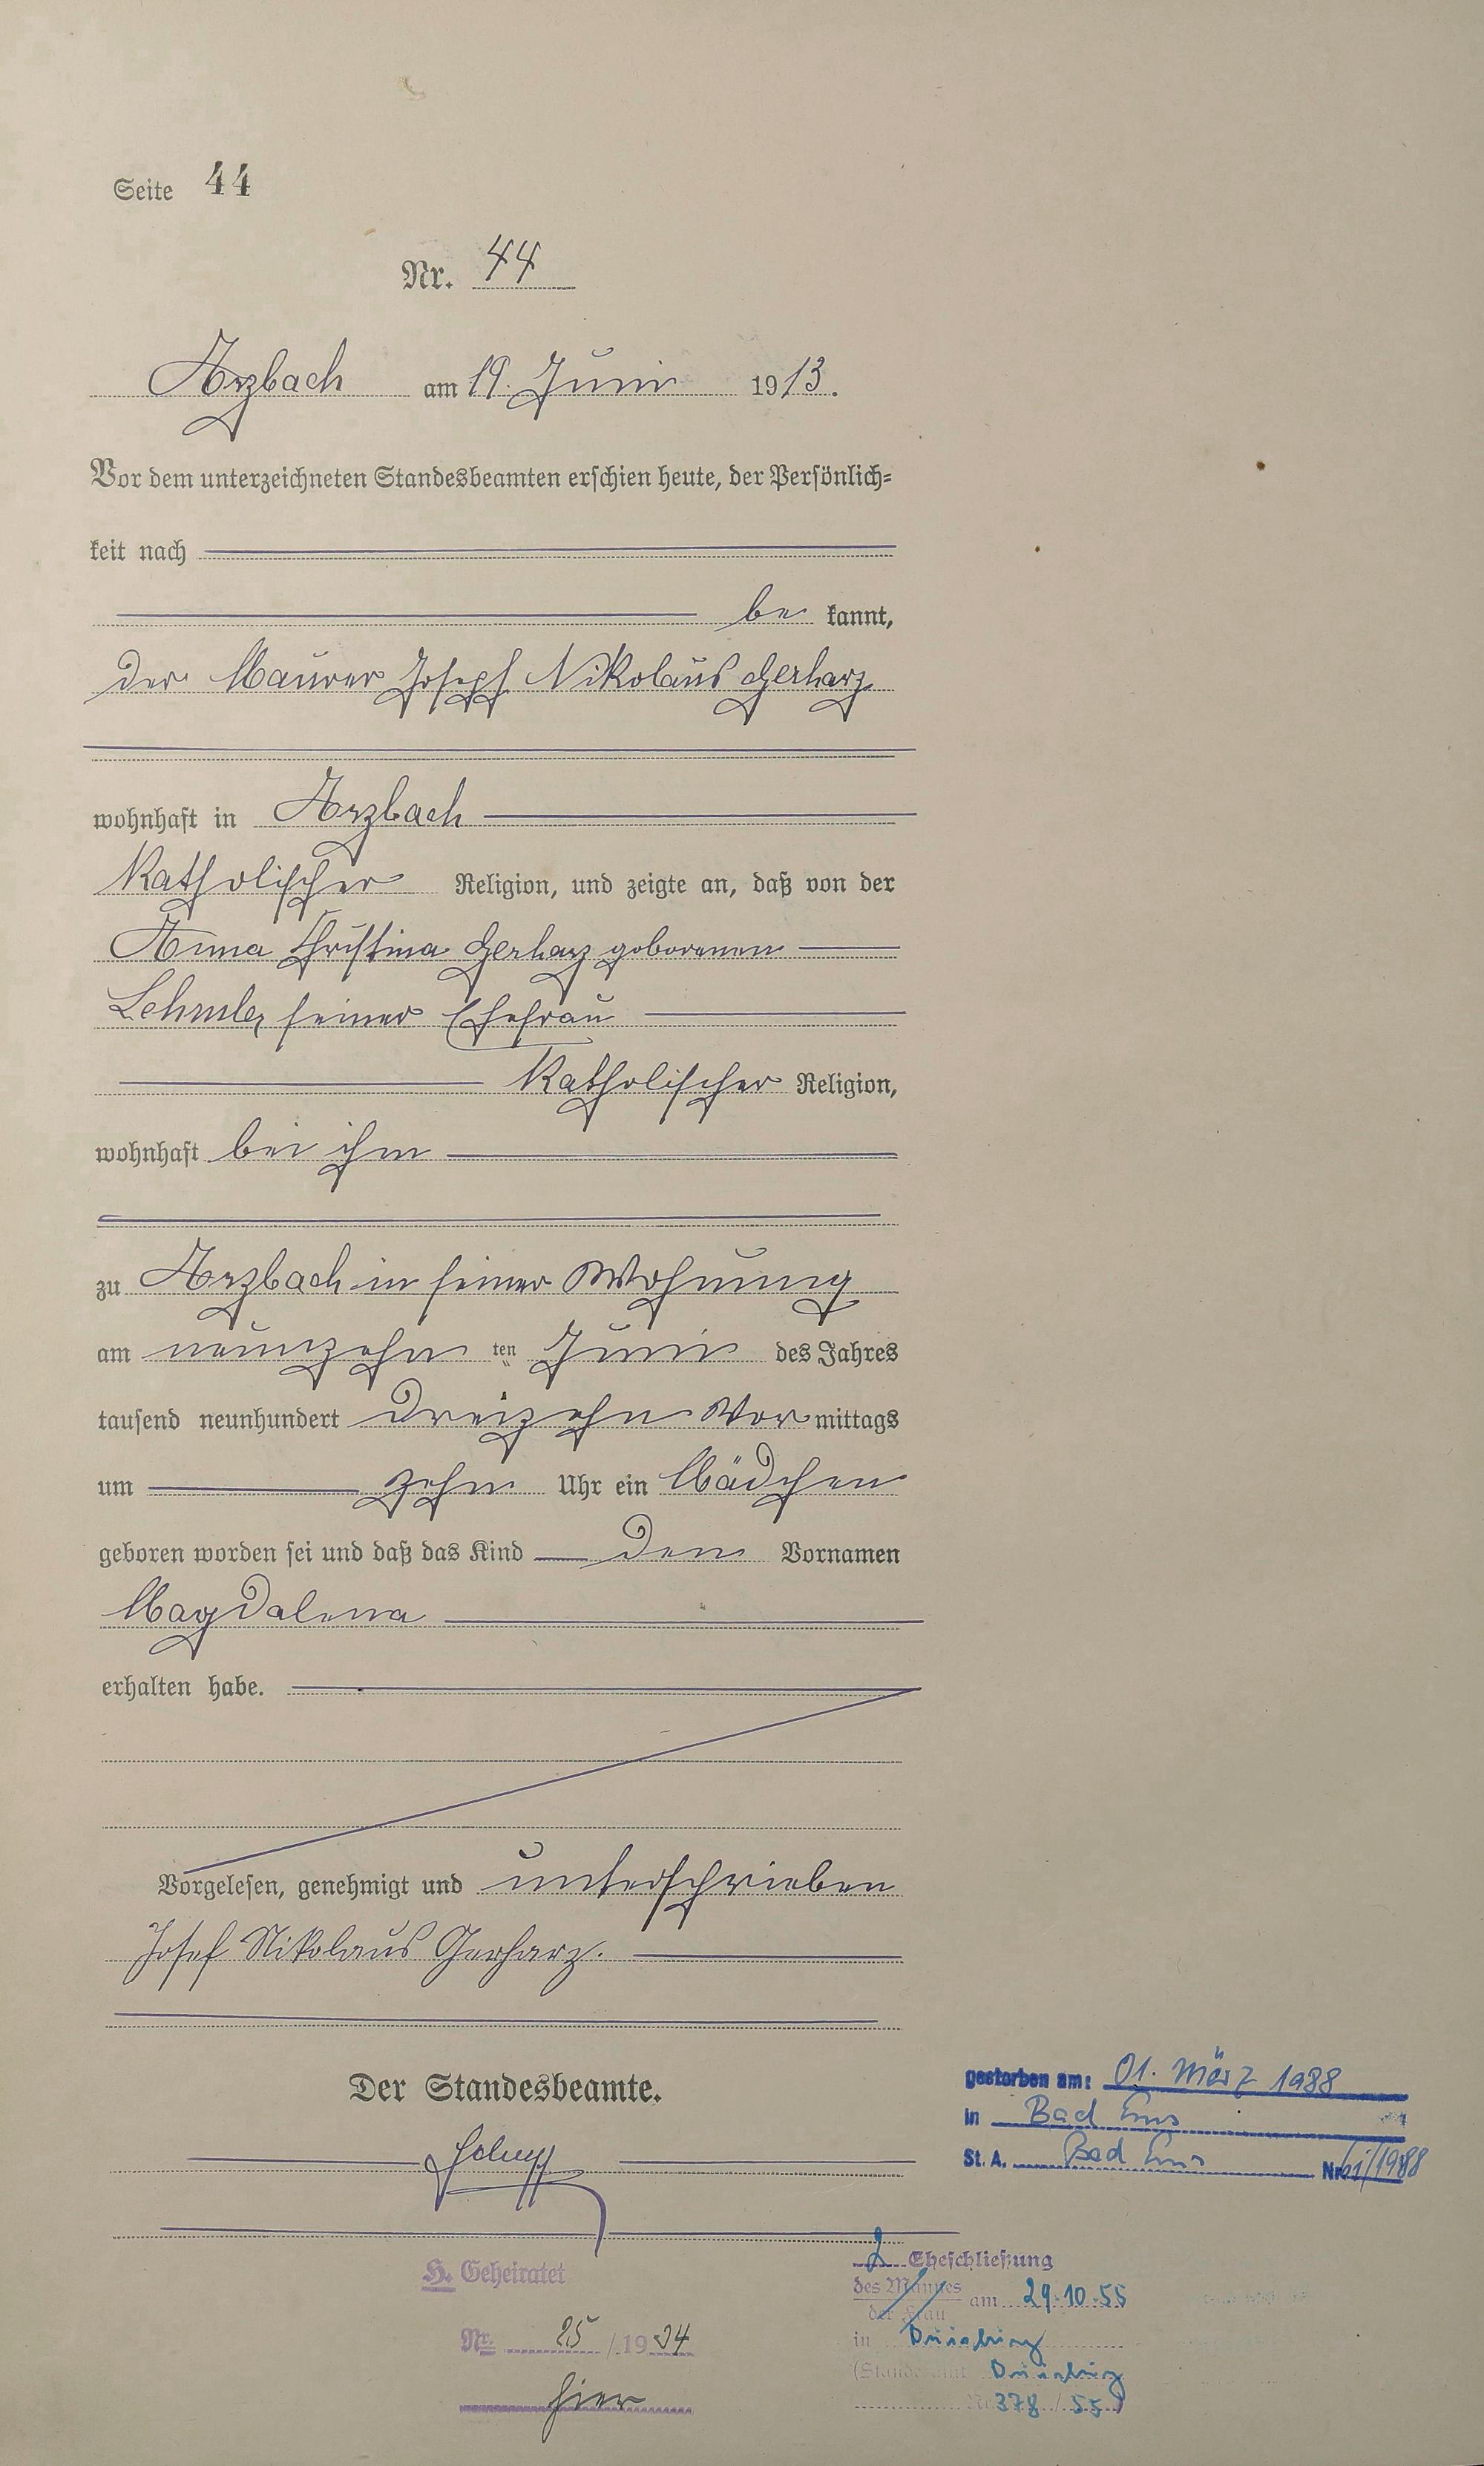 Seite 44
Nr. 44
Arzbach am 19. Juni 1913.
Vor dem unterzeichneten Standesbeamten erschien heute, der Persönlich=
keit nach
be kannt,
der Maurer Joseph Nikolaus Gerharz
wohnhaft in Arzbach
Katholischer Religion, und zeigte an, daß von der
Anna Christina Gerharz geborenen
Lehmler, seiner Ehefrau
Katholischer Religion,
wohnhaft bei ihm
zu Arzbach in seiner Wohnung
am neunzehn ten Juni des Jahres
tausend neunhundert dreizehn Vor mittags
um zehn Uhr ein Mädchen
geboren worden sei und daß das Kind den Vornamen
Magdalena
erhalten habe.
Vorgelesen, genehmigt und unterschrieben
Josef Nikolaus Gerharz.
Der Standesbeamte.
gestorben am: 01. März 1988
in Bad Ems
St. A. Bad Ems Nr. /1988
H. Geheiratet
Nr. 25/1934
hier
2 Eheschließung
des Mannes
der Frau am 29.10.55
in Duisburg
(Standesamt Duisburg
Nr. 378/55)